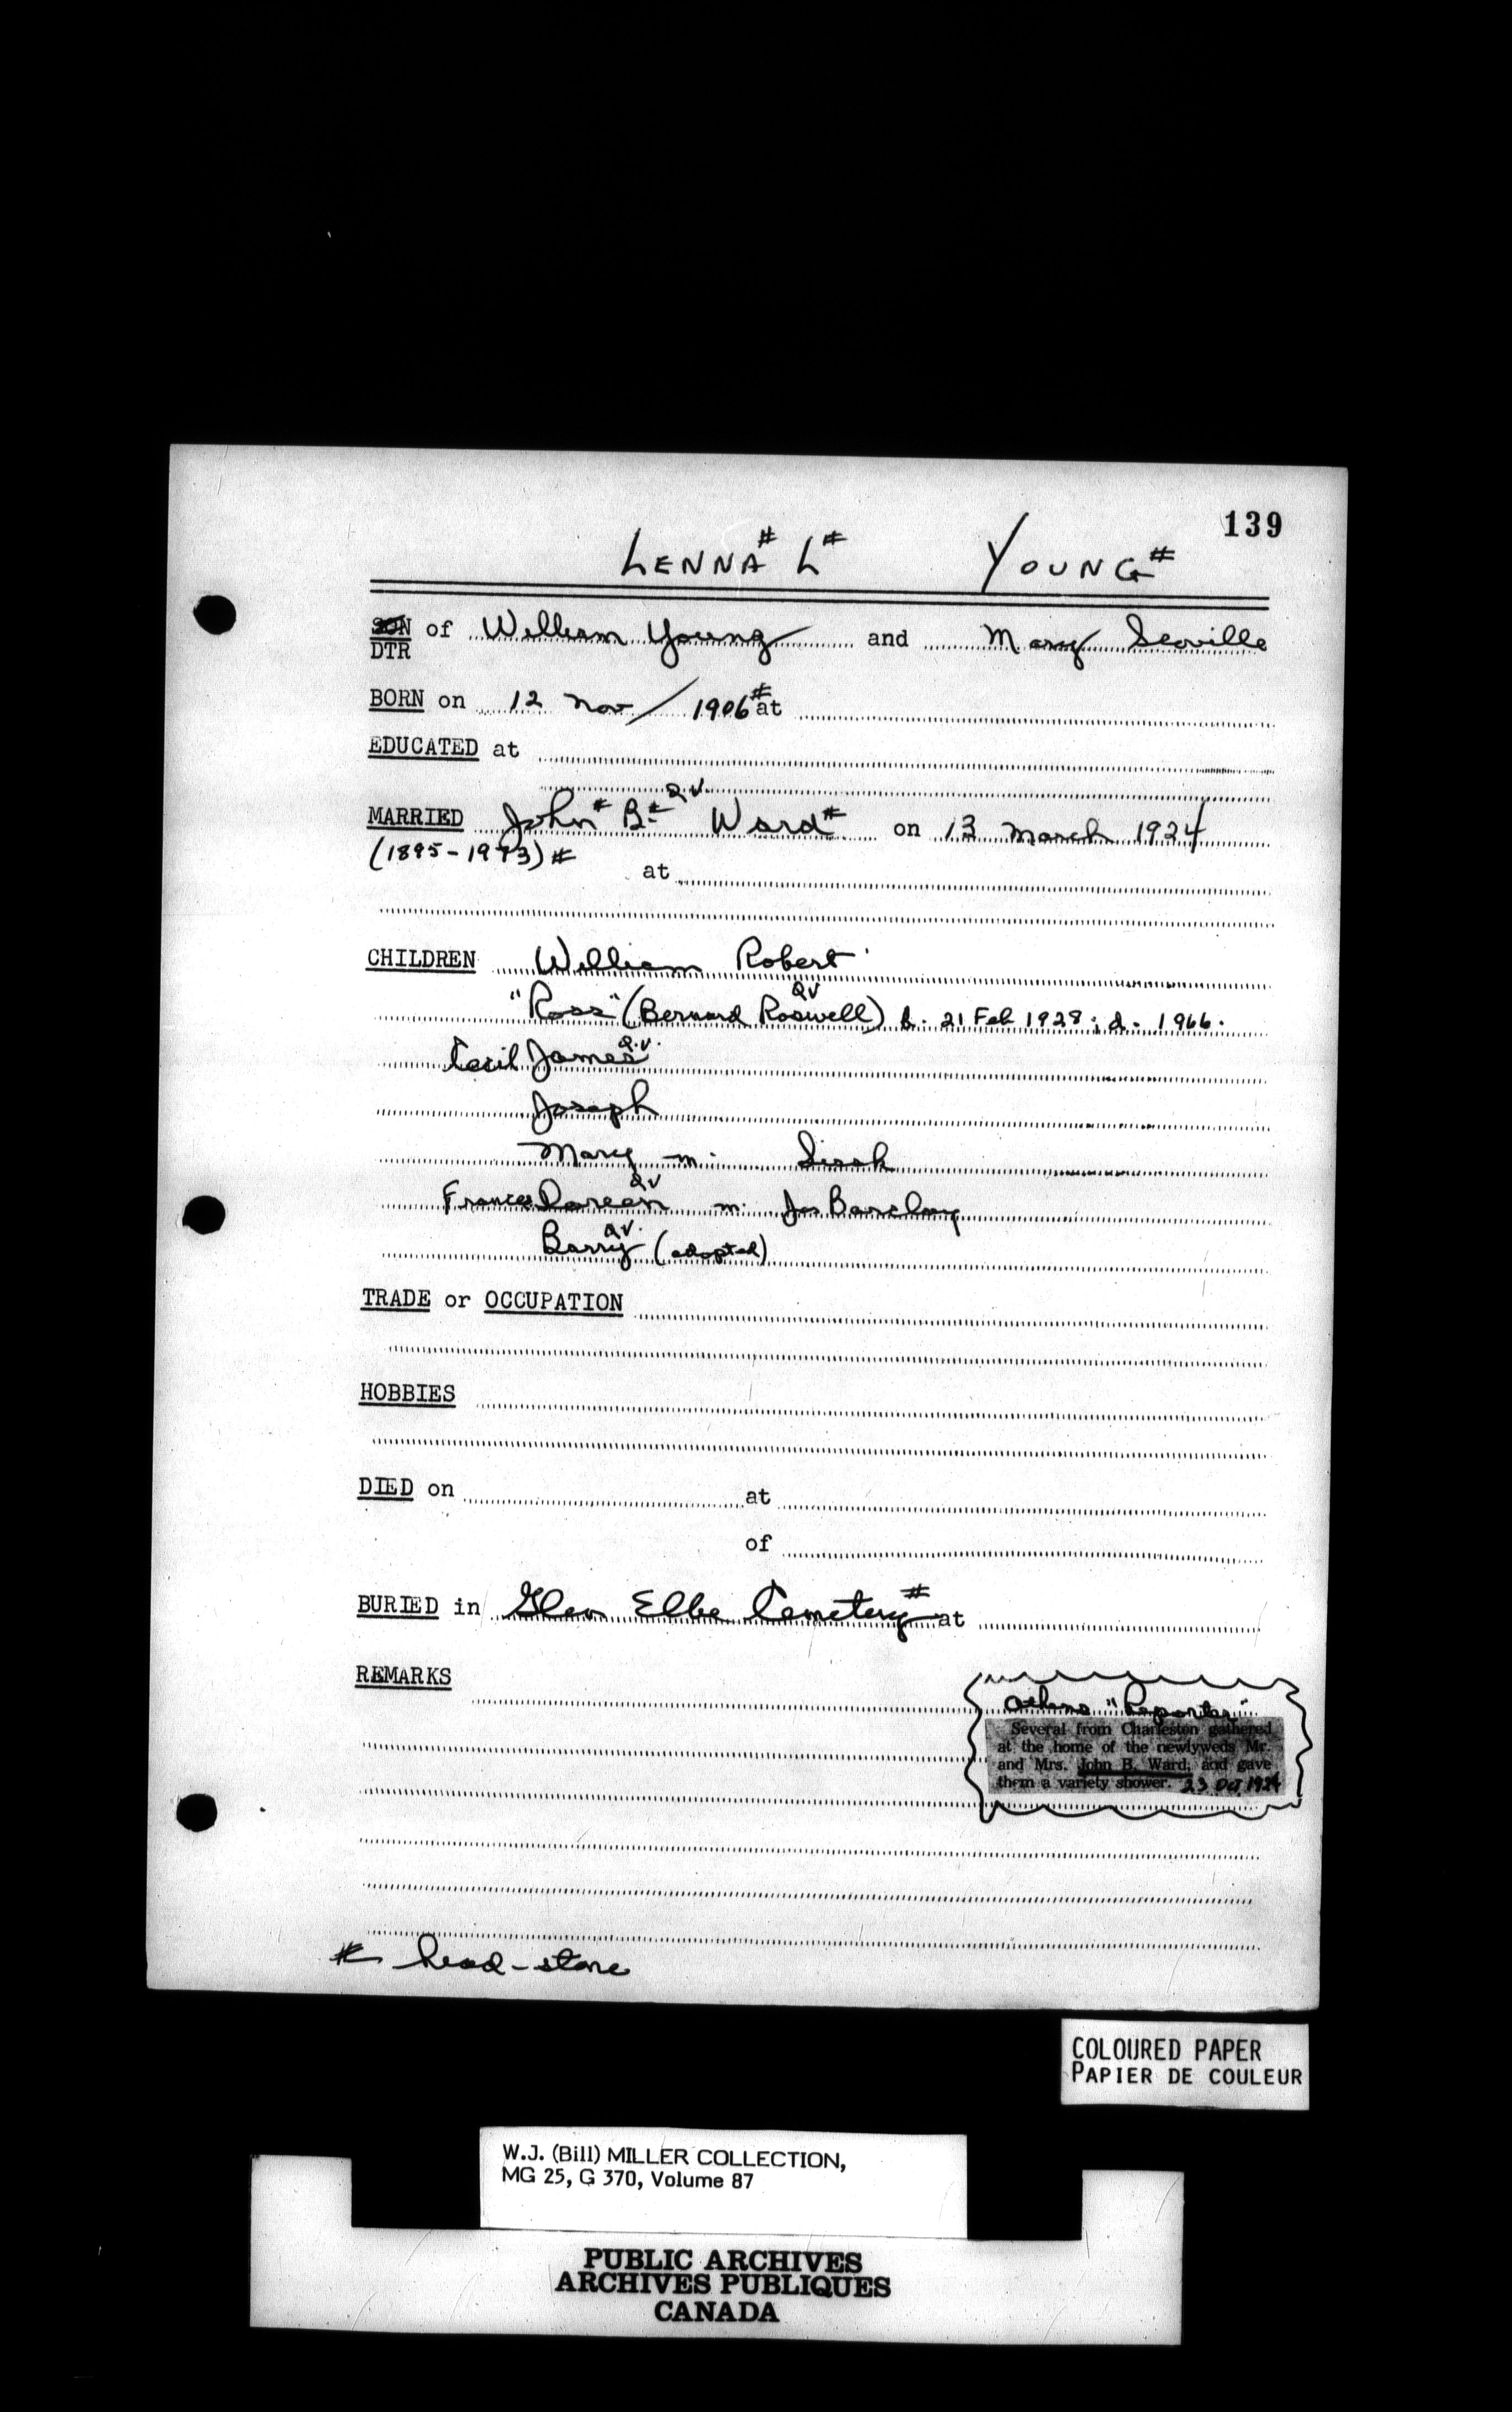 139
LENNA# L# YOUNG#
SON of William Young and Mary Scoville
DTR
BORN on 12 Nov / 1906# at
EDUCATED at
MARRIED John# B# QV Ward# on 13 March 1924
(1895-1973)# at
CHILDREN William Robert
"Ross" (Bernard Roswell) QV b. 21 Feb 1928; d. 1966.
Cecil James Q.V.
Joseph
Mary m.
Frances Doreen QV m. Jas Barclay
Barry QV. (adopted)
TRADE or OCCUPATION
HOBBIES
DIED on at
of
BURIED in Glen Elbe Cemetery# at
REMARKS
Athens "Reporter"
Several from Charleston gathered
at the home of the newlyweds Mr.
and Mrs. John B. Ward, and gave
them a variety shower. 23 Oct 1924
# head-stone
COLOURED PAPER
PAPIER DE COULEUR
W.J. (Bill) MILLER COLLECTION,
MG 25, G 370, Volume 87
PUBLIC ARCHIVES
ARCHIVES PUBLIQUES
CANADA